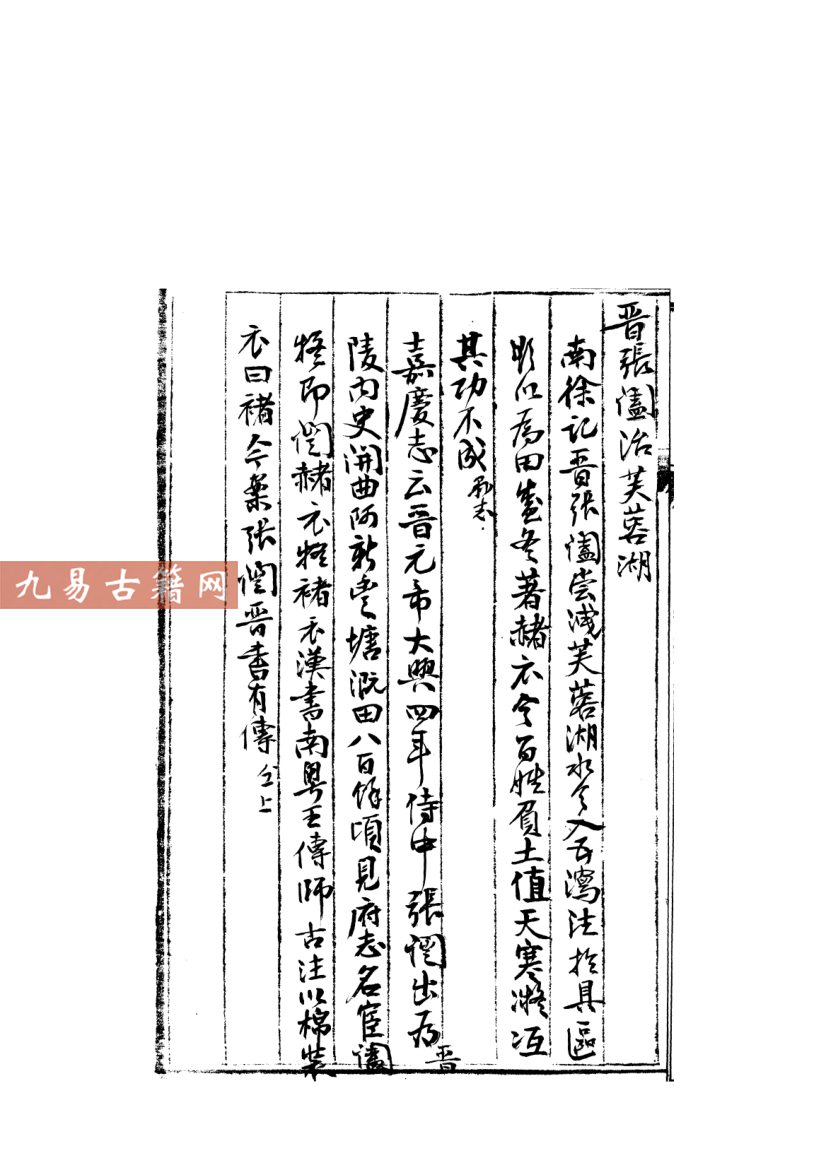 晋張闓治芙蓉湖
南徐記晋張闓嘗洩芙蓉湖水令入五瀉注於具區
欲以為田盛冬著赭衣令百姓負土值天寒凝沍
其功不成 京志
嘉慶志云晋元帝大興四年侍中張闓出為晋
陵内史開曲阿新豐塘溉田八百餘頃見府志名宦闓
疑即闓赭衣疑褚衣漢書南粤王傳師古注以棉裝
衣曰褚今案張闓晋書有傳 仝上
九易古籍网